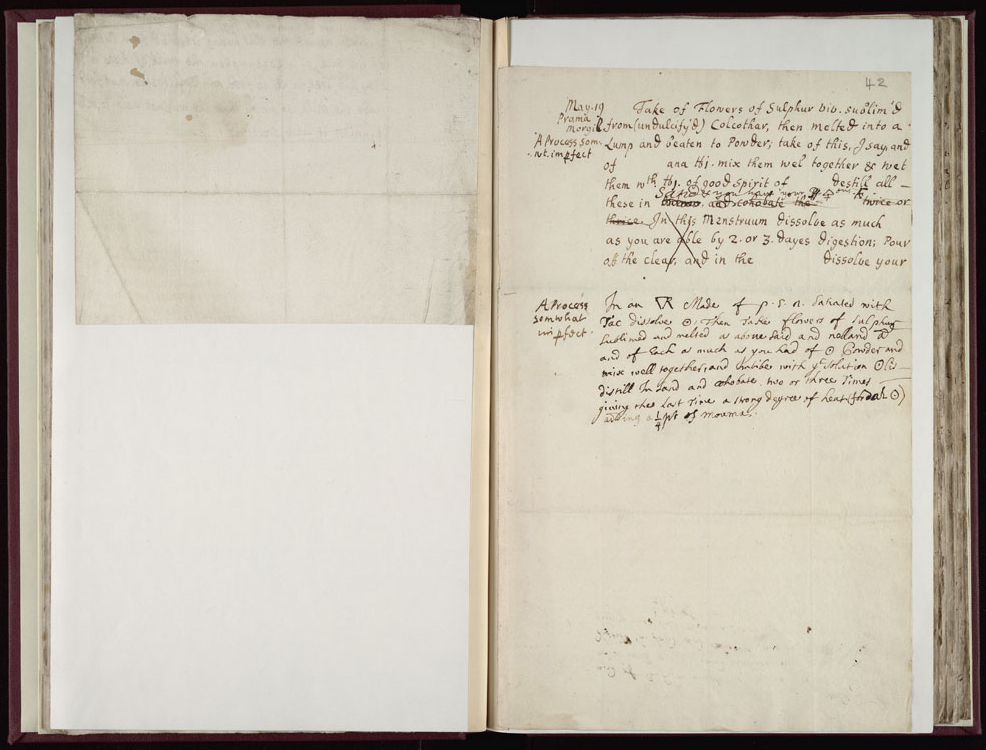 42
May. 19
Prama
morgil
A Process som-
wt. impfect
Take of Flowers of Sulphur bis. sublim'd
from (undulcify'd) Colcothar, then melted into a
Lump and beaten to Powder; take of this, I say, and
of ana tbj. mix them wel together & wet
them wth tbj. of good Spirit of destill all
these in Sand as you have now and cohobate the twice or
thrice. In this Menstruum dissolve as much
as you are able by 2. or 3. dayes digestion; Pour
off the clear, and in the dissolve your
A Process
somwhat
impfect.
In an made of p. s. n. satiated with
Tac dissolve ☉, Then Take flowers of sulphur
sublimed and melted as above said and
and of Each as much as you had of ☉ Powder and
mix well together, and imbibe with ye solution
distill In sand and cohobate two or three Times
giving the last Time a strong degree of heat
adding a 1/4 pt of